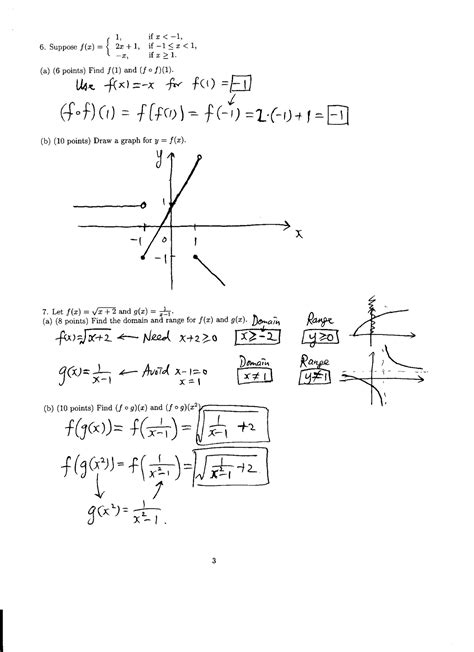 6. Suppose f(x) = { 1, if x < -1,
2x + 1, if -1 ≤ x < 1,
-x, if x ≥ 1.
(a) (6 points) Find f(1) and (f ∘ f)(1).
Use f(x)=-x for f(1) = -1
(f∘f)(1) = f(f(1)) = f(-1) = 2·(-1)+1 = -1
(b) (10 points) Draw a graph for y = f(x).
y
1
-1 0 1 x
-1
7. Let f(x) = √x + 2 and g(x) = 1/x-1.
(a) (8 points) Find the domain and range for f(x) and g(x). Domain Range
f(x)=√x+2 ← Need x+2≥0 x≥-2 y≥0
Domain Range
g(x)= 1/x-1 ← Avoid x-1=0 x≠1 y≠1
x=1
(b) (10 points) Find (f ∘ g)(x) and (f ∘ g)(x²)
f(g(x)) = f(1/x-1) = √1/x-1 +2
f(g(x²)) = f(1/x²-1) = √1/x²-1 +2
g(x²) = 1/x²-1.
3